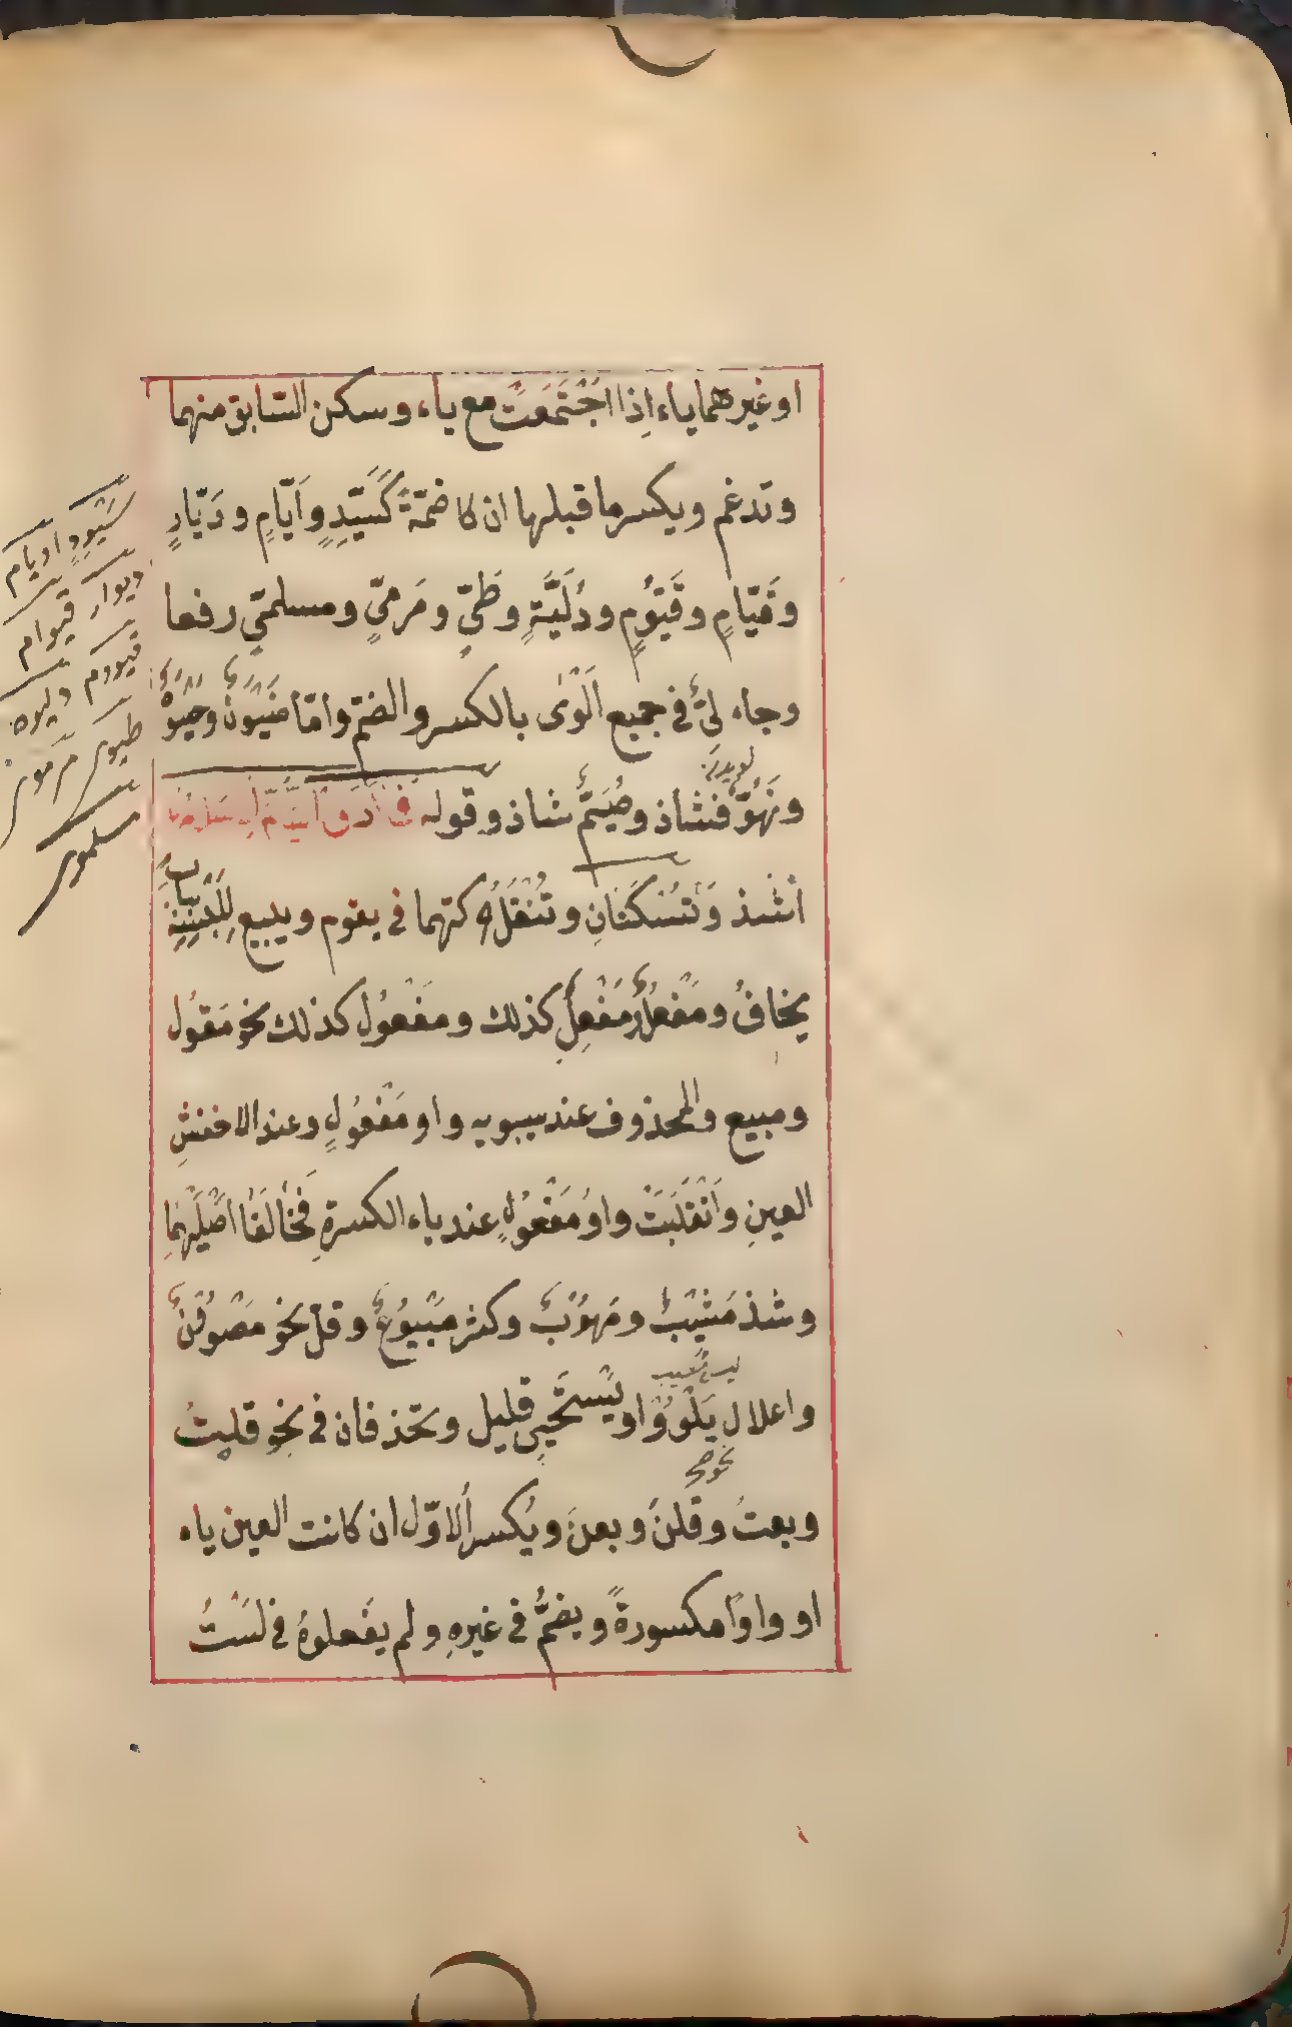 او غيرهما ياء اِذا اجْتَمَعَتْ مع ياء وسكن السّابق منهما
وتدغم ويكسر ما قبلها ان كا ضمّةً كَسَيِّدٍ واَيّامٍ ودَيّارٍ
وقَيّامٍ وقَيّوُمٍ ودُلَيَّةٍ وطَيٍّ ومَرميٍّ ومسلميّ رفعا
وجاء لىٌّ في جميع اَلْوى بالكسر والضمّ وامّا ضَيْوَنٌ وحَيْوَةُ
ونَهُوّ فشاذ وصُيَّمٌ شاذ وقوله
اشذ وَتُسْكَنانِ وتُنْقَلُ كتهما في يقوم ويبيع لِلَبْسِهِ بباب
يخافُ ومَفْعُلٌ ومَفْعِلٌ كذلك ومفْعُول كذلك نحو مَقوُل
ومبيع والمحذوف عند سيبويه واو مَفْعُولٍ وعند الاخفشِ
العينِ وانْقَلَبَتْ واوُ مَفْعُولٍ عند ياء الكسرةِ فَخالَفا اصْلَيْهِما
وشذ مَشيْبٌ ومَهوُبٌ وكثر مَبْيوُعٌ وقلّ نحو مَصْوُونٌ
واعلال يَلْوُوْا ويَسْتَحْيِى قليل وتحذفان في نحو قلتُ
وبعتُ وقلنَ وبعنَ ويُكسر الاوّل ان كانت العين ياء
او واوًا مكسورةً ويضمُّ في غيرِهِ ولم يفَعلوهُ في لَسْتُ
سَيْوِدٍ اَيْوام
ديوار قيوام
قيووم دليوة
طيوى مرموى
مسلموى
نحوه